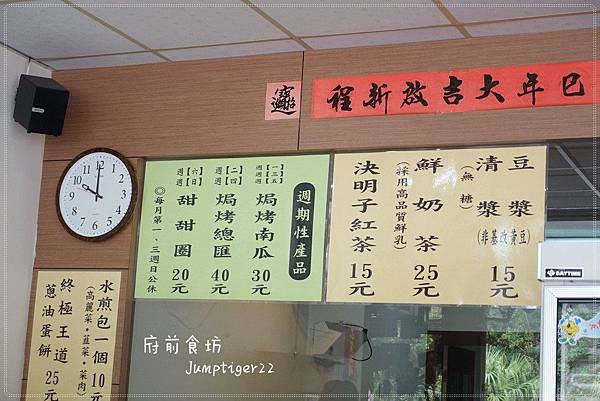 巳年大吉啟新程
招財進寶
豆漿
清漿
(無糖)
(非基改黃豆)
15元
鮮奶茶
(採用高品質鮮乳)
25元
決明子紅茶
15元
週期性產品
週【一】
週【三】
週【五】
焗烤南瓜
30元
週【二】
週【四】
焗烤總匯
40元
週【六】
週【日】
甜甜圈
20元
◎每月第一、三週日公休
水煎包一個10元
(高麗菜・韮菜・菜肉)
終極王道
蔥油蛋餅
25元
DAYTIME
府前食坊
Jumptiger22
12
1
2
3
4
5
6
7
8
9
10
11